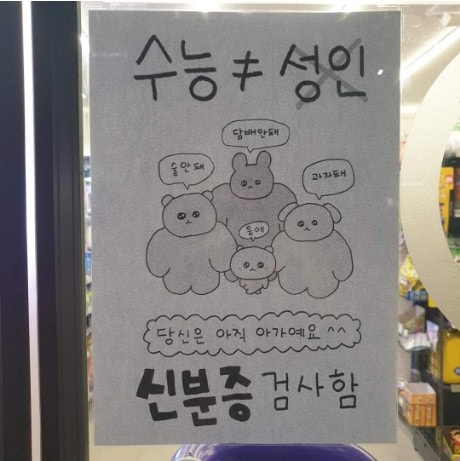 수능 ≠ 성인
담배안돼
술안돼
과자돼
응애
당신은 아직 아가예요 ^^
신분증 검사함